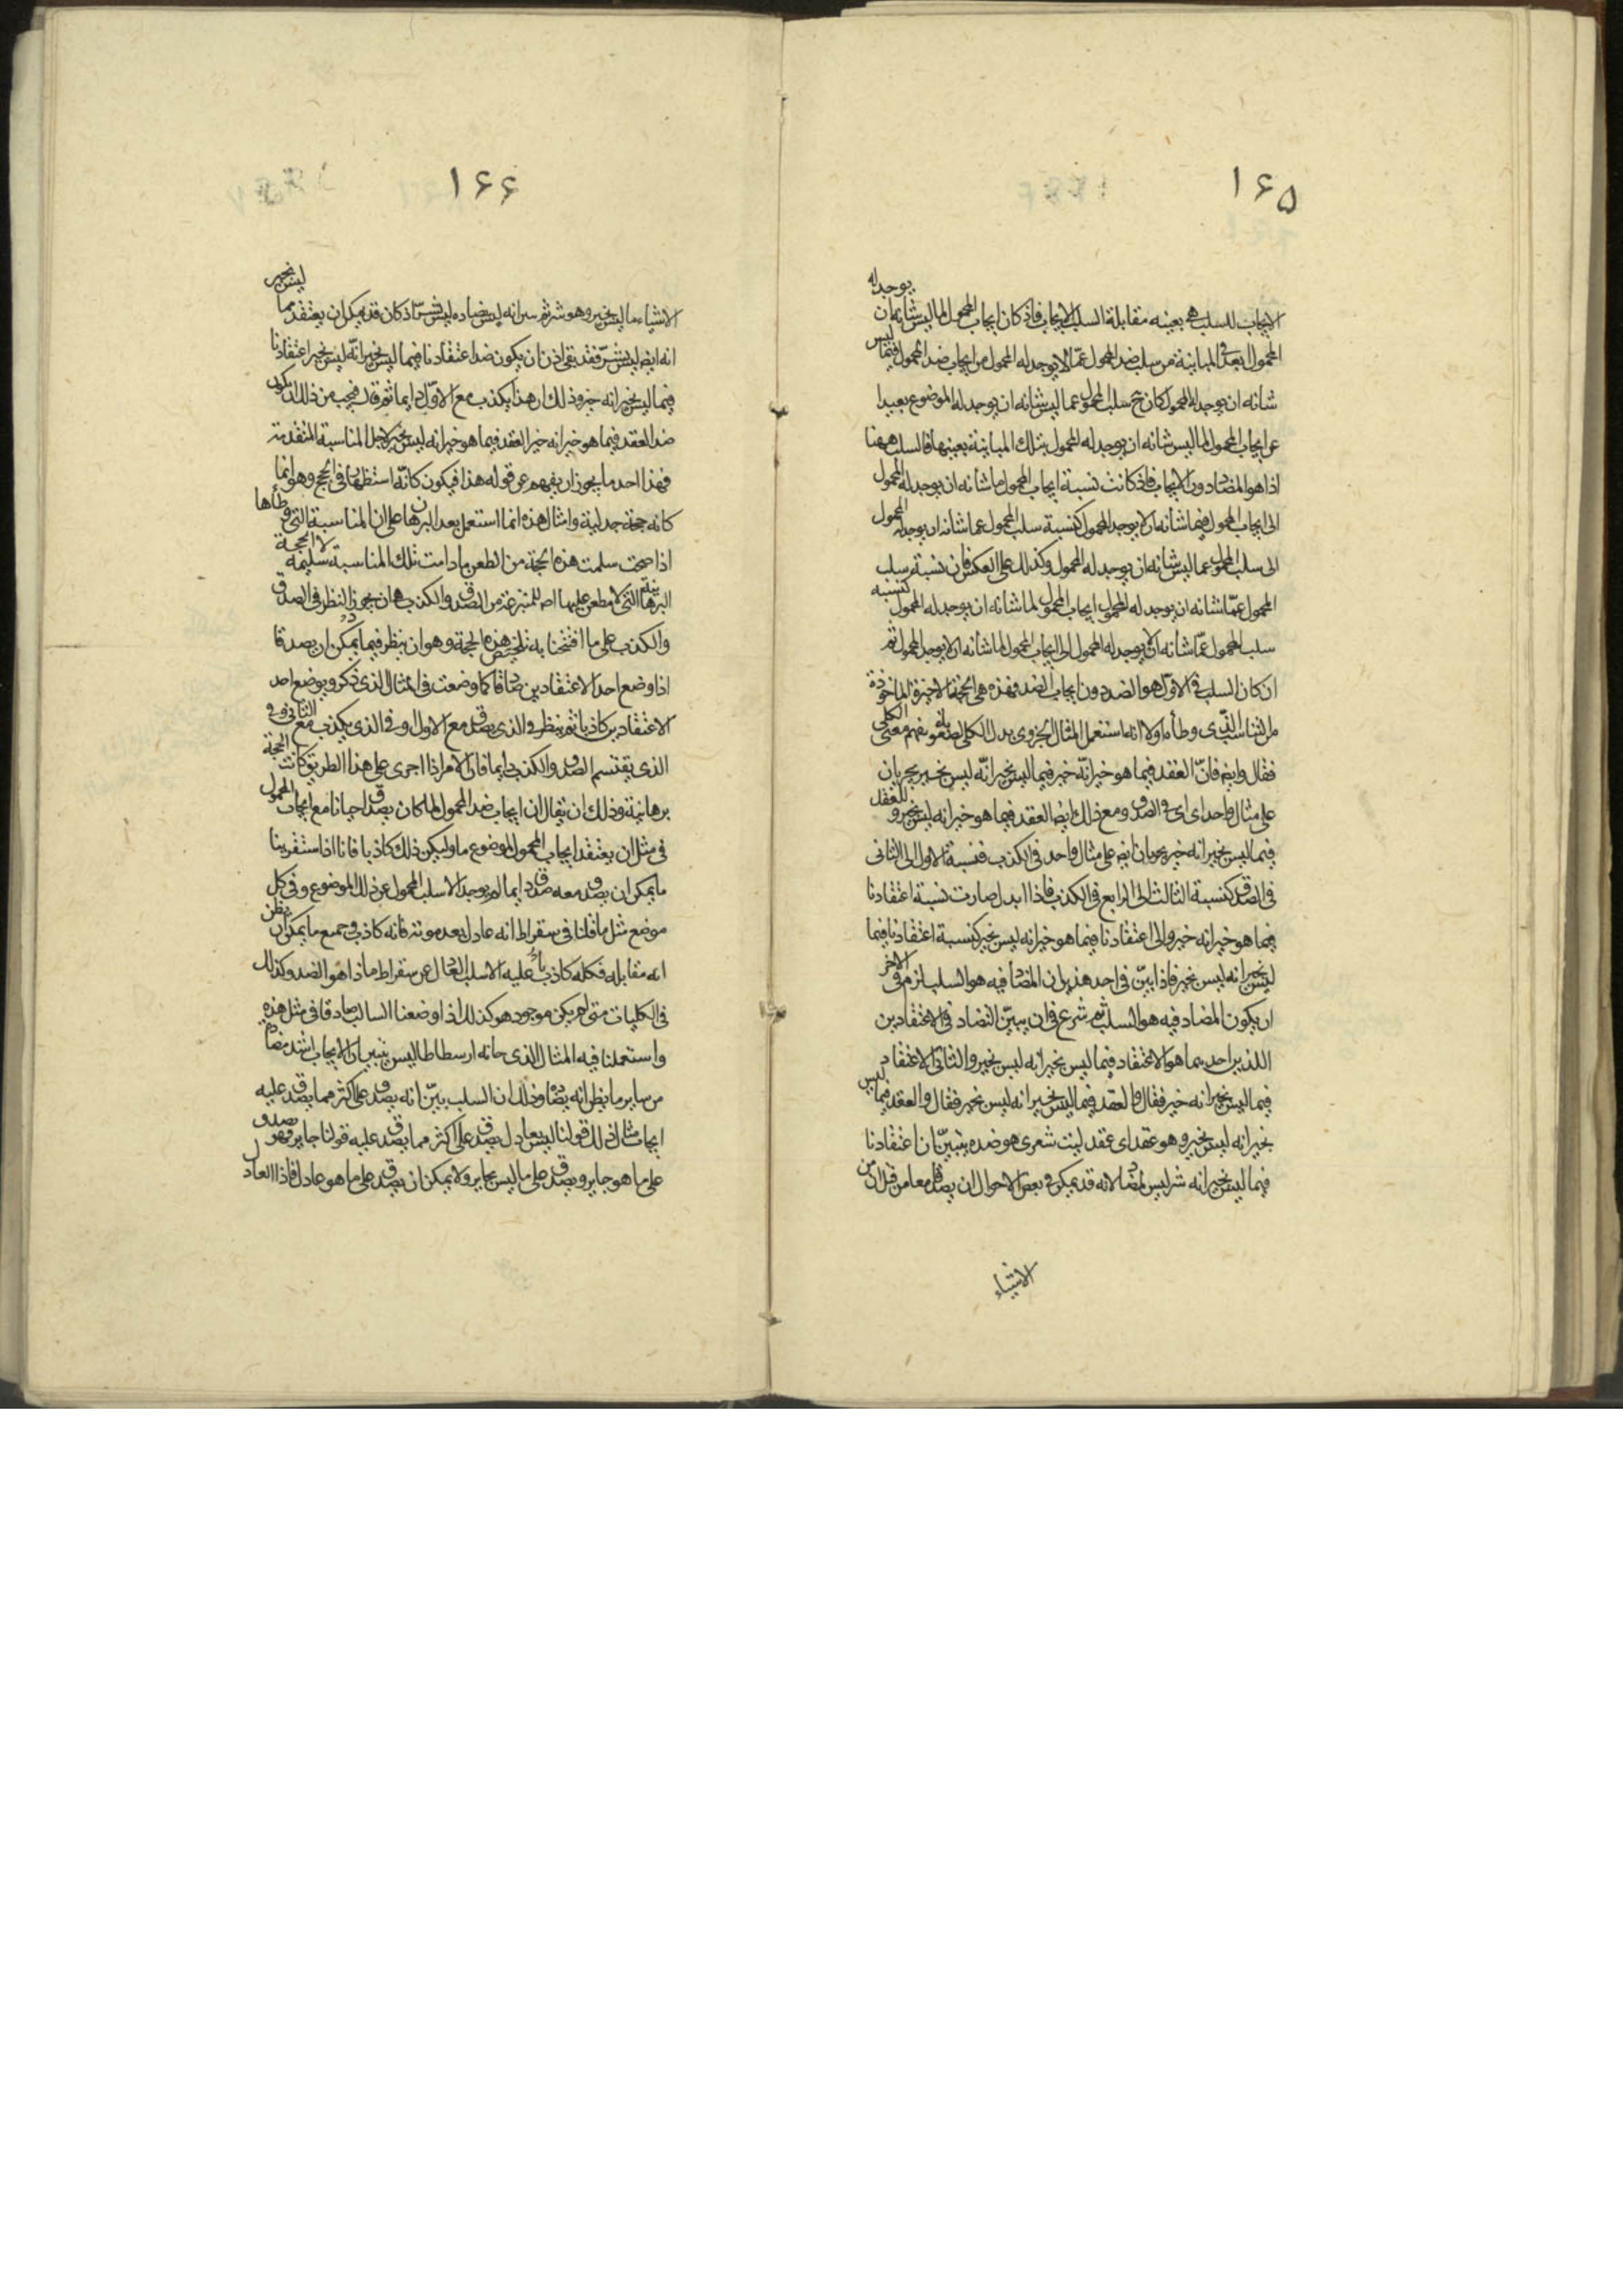 ١۶۵
يوجد له
الايجاب للسلب هى بعينه مقابلة السلب للايجاب فاذ كان ايجاب المحمول لما ليس شانه ان
المحمول ابعد فى المباينة من سلب ضد المحمول عمّا لا يوجد له المحمول من ايجاب ضد المحمول فيما ليس
شانه ان يوجد له المحمول كان ح سلب المحمول عما ليس شانه ان يوجد له الموضوع بعيدا
عن ايجاب المحمول لما ليس شانه ان يوجد له المحمول بتلك المباينة بعينها فالسلب ههنا
اذا هو المضاد دون الايجاب فاذ كانت نسبة ايجاب المحمول ما شانه ان يوجد له المحمول
الى ايجاب المحمول فيما شانه ان لا يوجد المحمول كنسبة سلب المحمول عما شانه ان يوجد له المحمول
الى سلب المحمول عما ليس شانه ان يوجد له المحمول وكذلك على العكس فان نسبة سلب
المحمول عمّا شانه ان يوجد له المحمول ايجاب المحمول لما شانه ان يوجد له المحمول كنسبة
سلب المحمول عمّا شانه ان لا يوجد له المحمول الى ايجاب المحمول لما شانه ان لا يوجد المحمول ثم
ان كان السلب فى الاول هو الضد دون ايجاب الضد فهذه هى الحجة الاخيرة الماخوذة
من التناسب الذى وطأه اولا انما استعمل المثال الجزوى بدل الكلى معنى الكلى
فقال وايضا فانّ العقد فيما هو خير انّه خير فيما ليس بخير انّه ليس بخير يجريان
على مثال واحد اى فى الصدق ومع ذلك ايضا العقد فيما هو خير انه ليس بخير وللعقد
فيما ليس بخير انه خير يجريان ايضا على مثال واحد فى الكذب فنسبة الاول الى الثانى
فى الصدق كنسبة الثالث الى الرابع فى الكذب فاذا ابدل صارت نسبة اعتقادنا
فيما هو خير انه خير والى اعتقادنا فيما هو خير انه ليس بخير كنسبة اعتقادنا فيما
ليس بخير انه ليس بخير فاذا ابيّن فى احد هذين ان المضاد فيه هو السلب لزم فى الاخر
ان يكون المضاد فيه هو السلب ثم شرع فى ان يبيّن التضاد فى الاعتقادين
اللذين احديهما هو الاعتقاد فيما ليس بخير انه ليس بخير والثانى الاعتقاد
فيما ليس بخير انه خير فقال والعقد فيما ليس بخير انه ليس بخير فقال والعقد فيما ليس
بخير انه ليس بخير وهو عقد اى عقد ليت شعرى هو ضده يتبيّن ان اعتقادنا
فيما ليس بخير انه شر ليس لمضاد لانه قد يمكن فى بعض الاحوال ان يصدقا معا من قبل ان من
الاشياء
١۶۶
ليس بخير
الاشياء ما ليس بخير وهو شر ثم انه ليس يضاده ليس بشرّ اذ كان قد يمكن ان يعتقد مما
انه ايضا ليس بشرّ فقد بقى اذن ان يكون ضد اعتقادنا فيما ليس بخير انّه ليس بخير اعتقادنا
فيما ليس بخير انه خير وذلك ان هذا يكذب مع الاوّل دايما ثم قال فيجب من ذلك ان يكون
ضد العقد فيما هو خير انه خير العقد فيما هو خير انه ليس بخير لاجل المناسبة المتقدمة
فهذا احد ما يجوز ان يفهم عن قوله هذا فيكون كانّه استظهار فى الحجج وهو انما
كانه حجة جدلية وامثال هذه انما استعمل بعد البرهان على ان المناسبة التى وطأها
اذا صحت سلمت هذه الحجة من الطعن مادامت تلك المناسبة سليمة لا الحجة
البرهانية التى لا مطعن عليها اصلا المنتزعة من الصدق والكذب هان يجود النظر فى الصدق
والكذب على ما افتتحنا به تلخيص هذه الحجة وهو ان ينظر فيما يمكن ان يصدقا
اذا وضع احد الاعتقادين صادقا كما وضعت فى المثال الذى ذكر ويوضع احد
الاعتقادين كاذبا ثم ينظر فى الذى يصدق مع الاول او فى الذى يكذب مع الثانى وفى
الذى يقتسم الصدق والكذب دايما فان الامر اذا اجرى على هذا الطريق كانت الحجة
برهانية وذلك ان يقال ان ايجاب ضد المحمول لما كان يصدق احيانا مع ايجاب المحمول
فى مثل ان يعتقد ايجاب المحمول لموضوع ما وليكن ذلك كاذبا فانا اذا استقرينا
ما يمكن ان يصدق معه صدقا دايما لم يوجد الا سلب المحمول عن ذلك الموضوع وفى كل
موضع مثل ما قلنا فى سقراط انه عادل بعد موته فانه كاذب وجميع ما يمكن ان يظن
انه مقابله فكله كاذب عليه الا سلب العادل عن سقراط ما ذا هو الضد وكذلك
فى الكليات متى لم يكن موجود هو كذلك اذا وضعنا السالب صادقا فى مثل هذه
واستعملنا فيه المثال الذى جاء به ارسطاطاليس تبين ان الايجاب اشد مضادة
من ساير ما يظن انه يضاده وذلك ان السلب بيّن انه يصدق على اكثر مما يصدق عليه
ايجاب مثال ذلك قولنا ليس بعادل يصدق على اكثر مما يصدق عليه قولنا جاير فهو يصدق
على ما هو جاير ويصدق على ما ليس بجاير ولا يمكن ان يصدق على ما هو عادل فاذا العادل